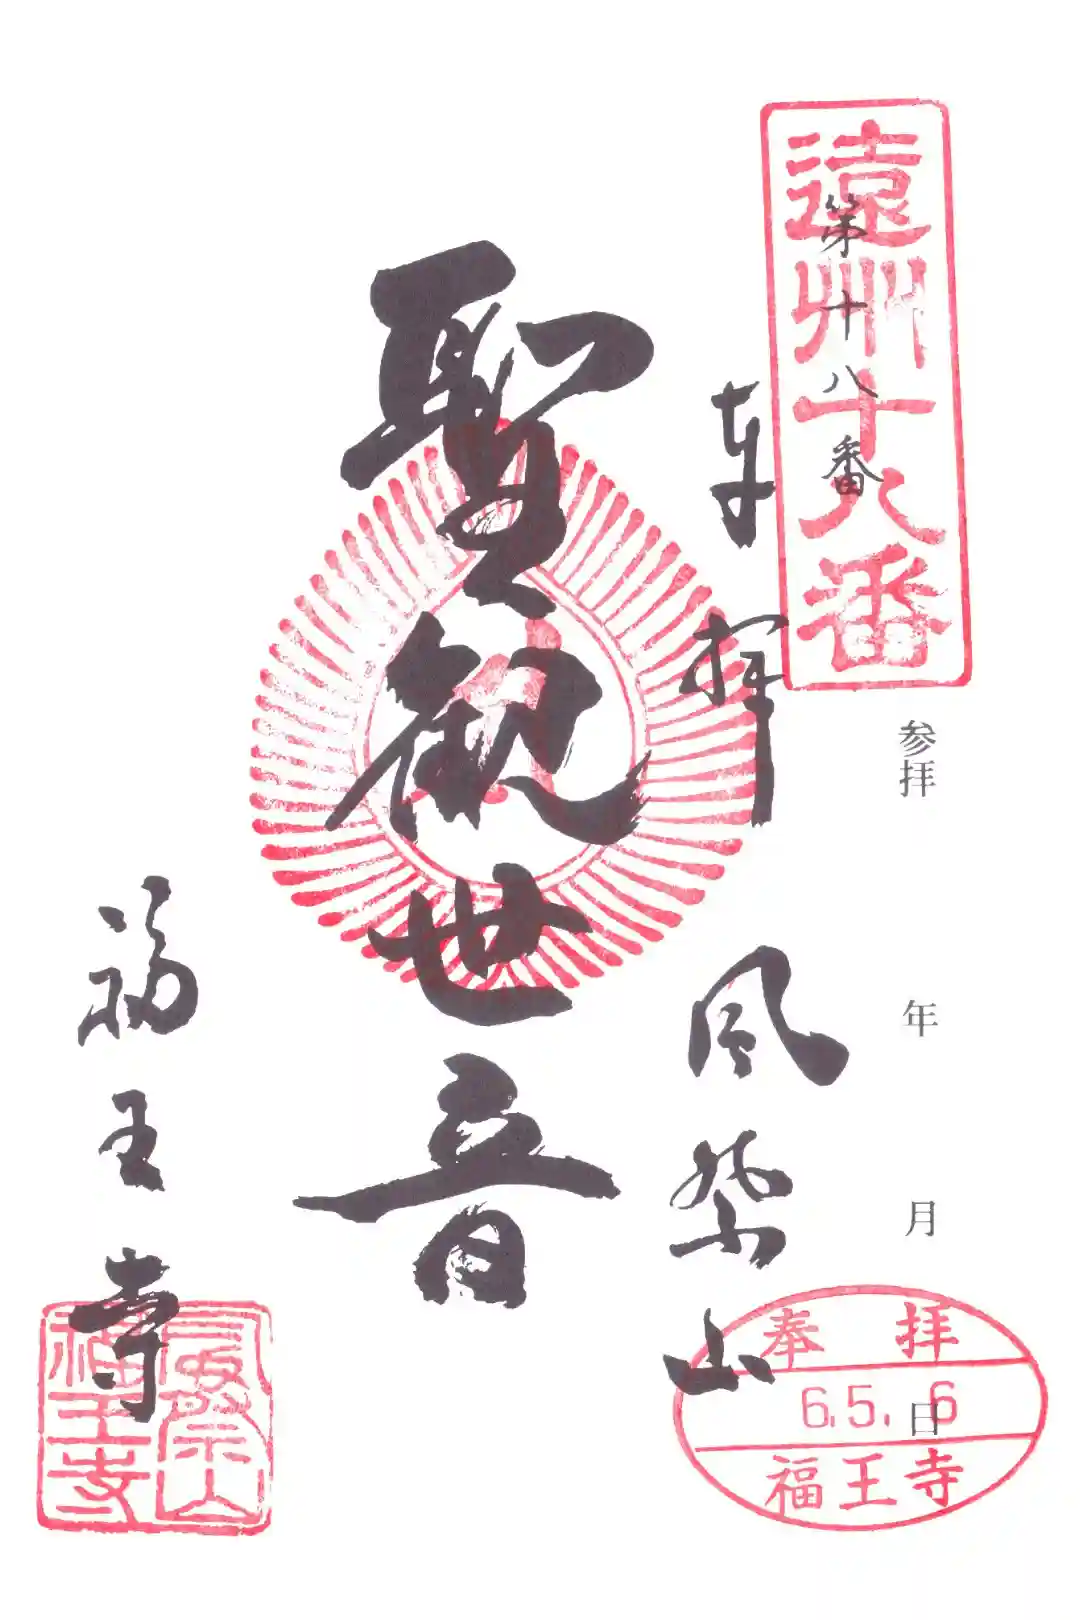 遠州十八番
第十八番
参拝 年 月 日
奉拝
風祭山
聖観世音
福王寺
風祭山
福王寺
奉拝
6.5.6
福王寺